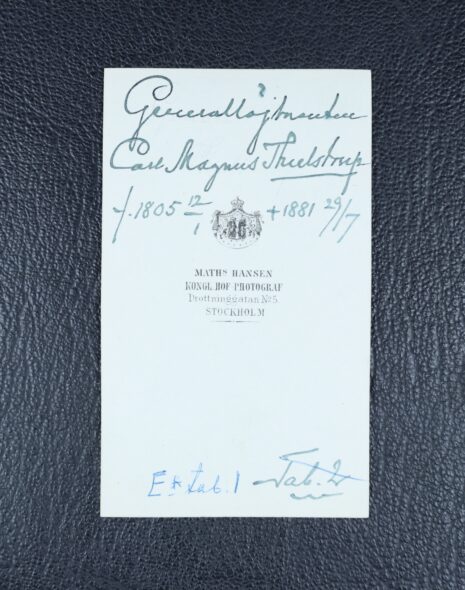 Generallöjtnanten
Carl Magnus Thulstrup
f. 1805 12/1 + 1881 29/7
MATHS HANSEN
KONGL. HOF PHOTOGRAF
Drottninggatan No 5
STOCKHOLM
tab. 1 Tab. 2